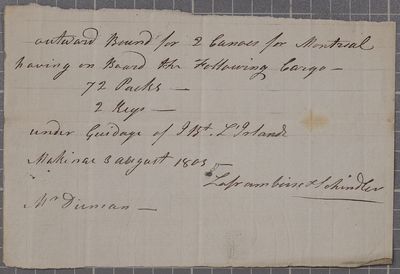 outward Bound for 2 Canoes for Montreal
having on Board the Following Cargo —
72 Packs —
2 Kegs —
under Guidage of J Bt. L'Irlande
Makinac 3 august 1805 —
Laframboise & Schindler
Mr Duncan —